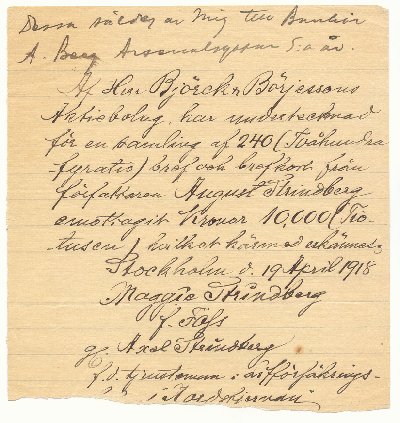 Dessa såldes av mig till Bankir
A. Berg Arsenalsgatan 5:a år.
Af Herr Björck & Börjessons
Aktiebolag, har undertecknad
för en samling af 240 (Tvåhundra
fyratio) bref och brefkort från
författaren August Strindberg
emottagit Kronor 10,000 (Tio
tusen) hvilket härmed erkännes.
Stockholm d. 19 April 1918
Maggie Strindberg
f. Fåfs
g/ Axel Strindberg
f. d. tjensteman i Lifförsäkrings-